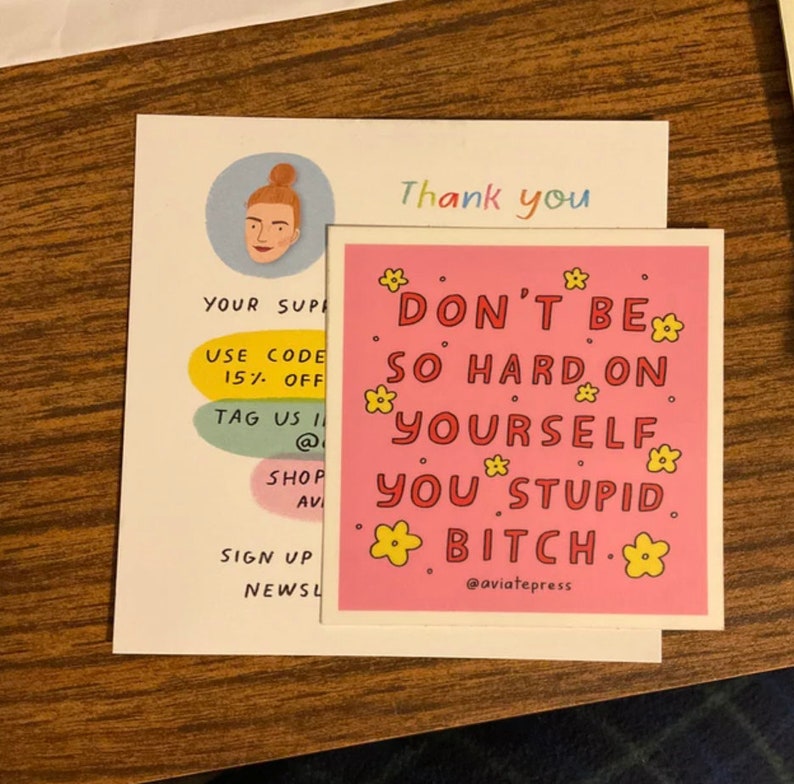 Thank you
YOUR
USE CODE
15% OFF
TAG US
@
SHOP
SIGN UP
DON'T BE
SO HARD ON
YOURSELF
YOU STUPID
BITCH.
@aviatepress